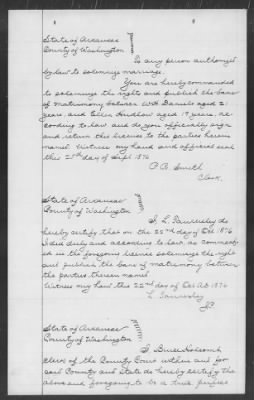 State of Arkansas
County of Washington
To any person authorized
by law to solemnize marriage.
You are hereby commanded
to solemnize the rights and publish the bans
of matrimony between W H Daniels aged 21
years and Ellen aged 19 years, ac
cording to law and do you officially sign
and return this license to the parties herein
named. Witness my hand and official seal
this 25th day of Sept 1876
P. P. Smith
Clerk.
State of Arkansas
County of Washington
I, L. do
hereby certify that on the 22nd day of Oct 1876
I did duly and according to law, as command
ed in the foregoing license solemnize the right
and publish the bans of matrimony between
the parties therein named
Witness my hand this 22nd day of Oct AD 1876
L.
JP
State of Arkansas
County of Washington
I
clerk of the County Court within and for
said County and State do hereby certify the
above and foregoing to be a true